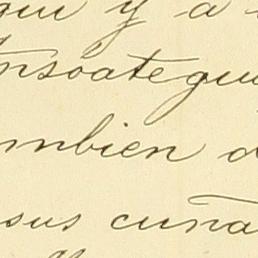 qui y a
nsoategui
mbien d
sus cuña